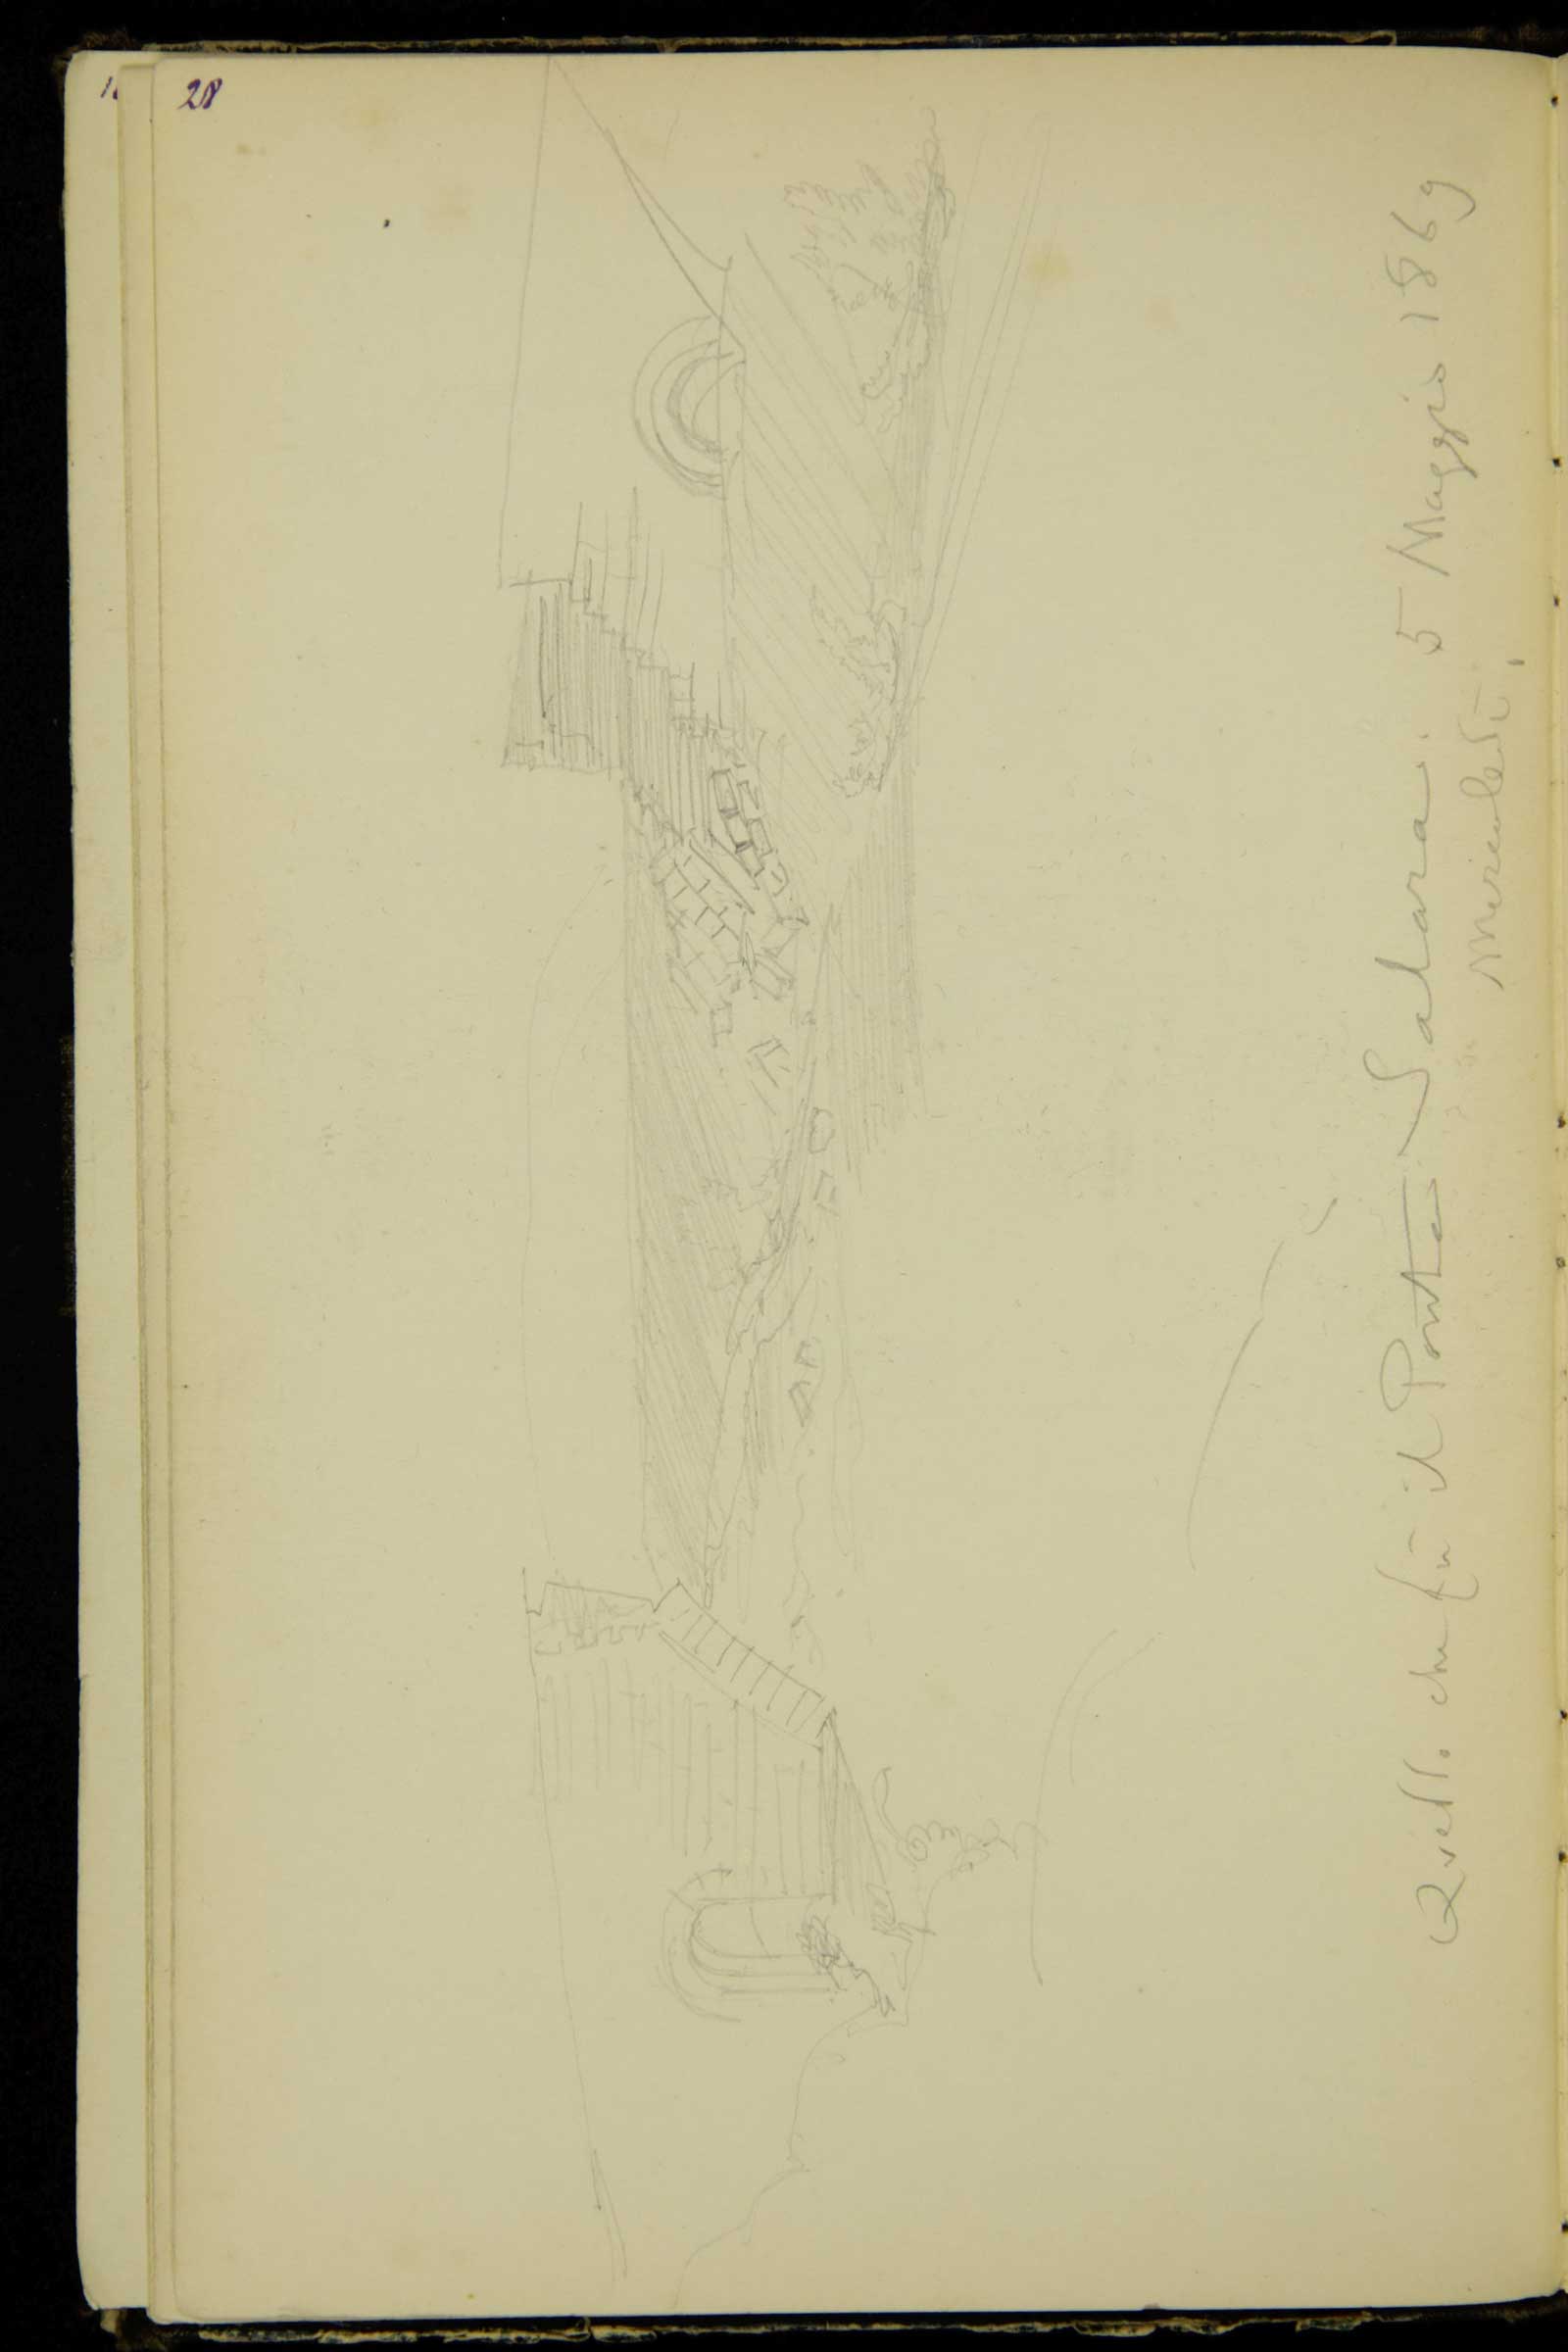 28
Quello che fù il Ponte Salara. 5 Maggio 1869
Mercoledì.